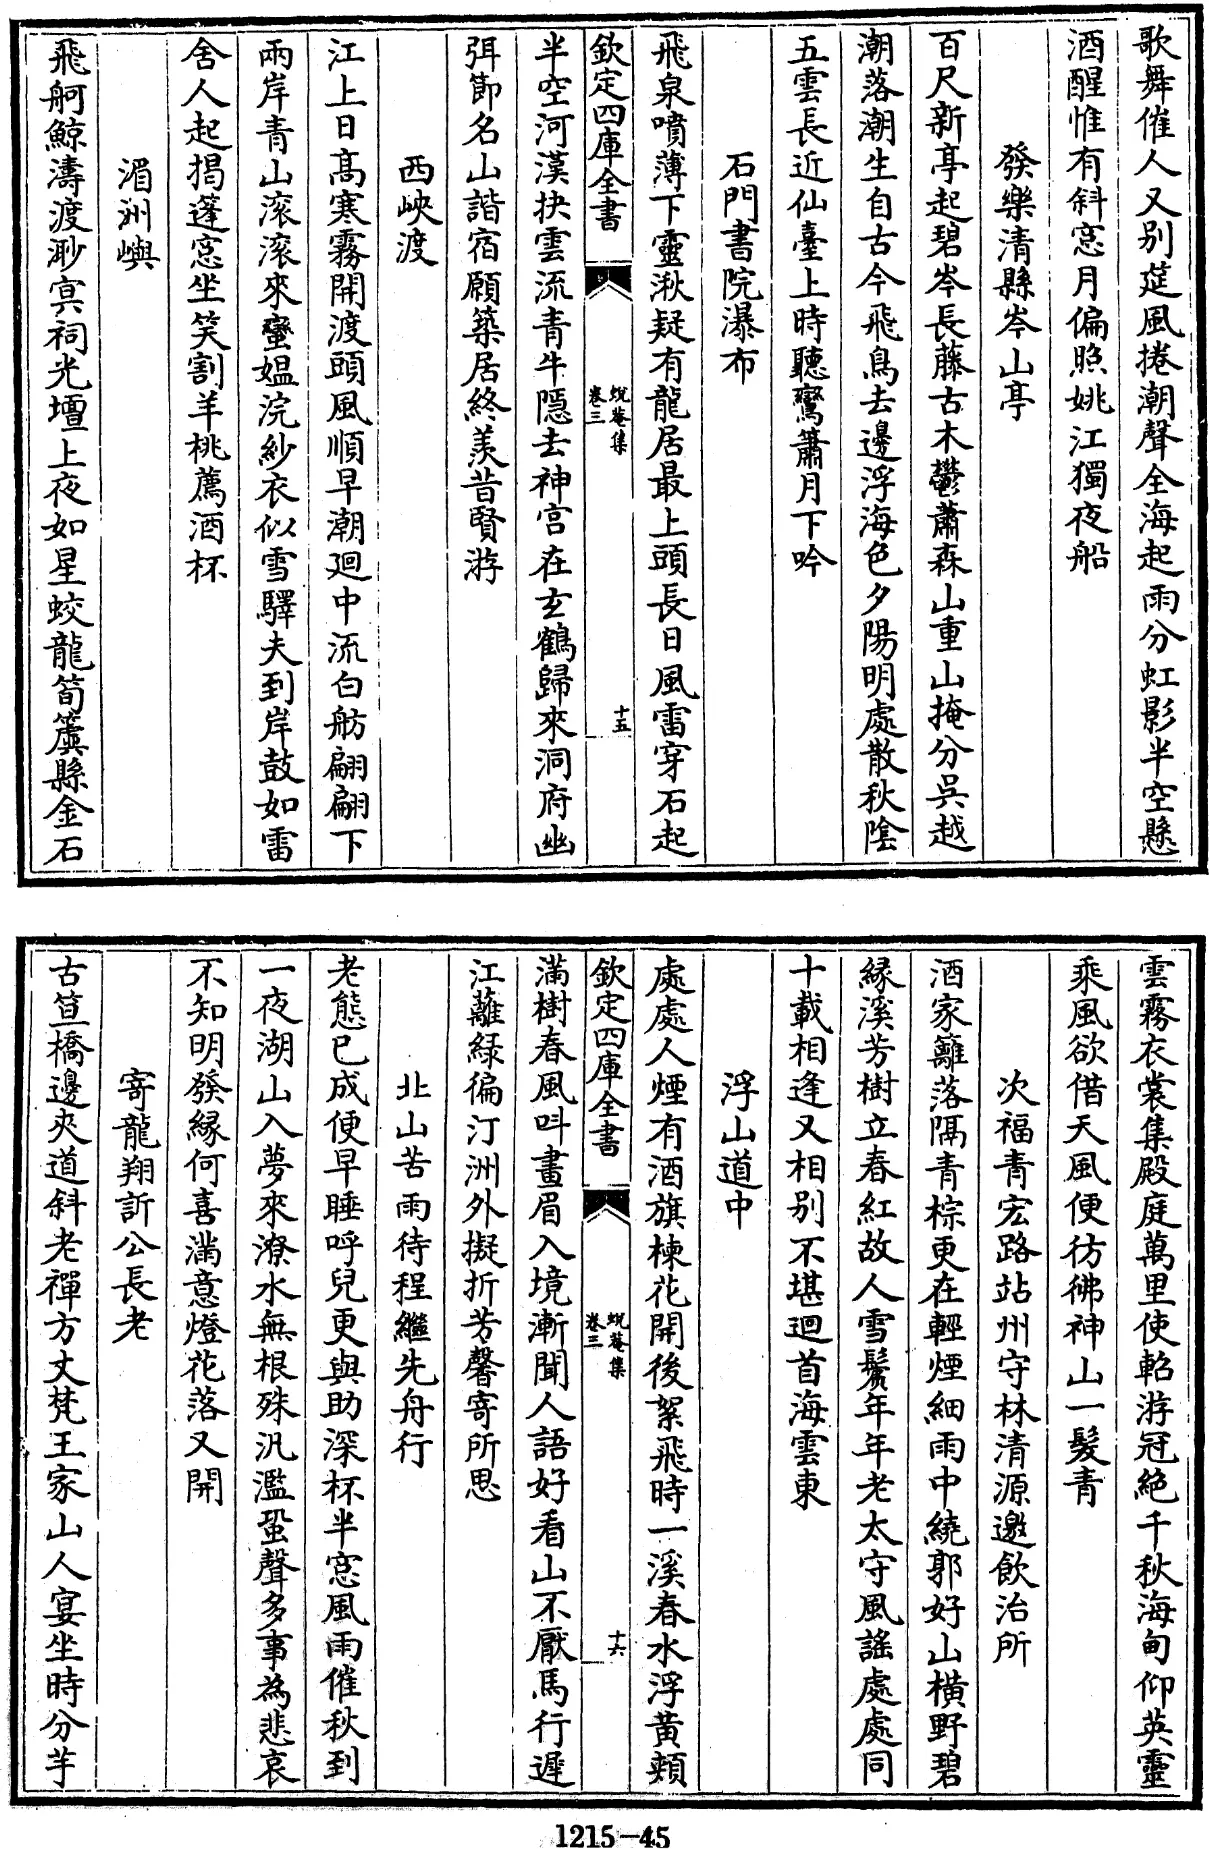 歌舞催人又别筵風捲潮聲全海起雨分虹影半空懸
酒醒惟有斜窓月偏照姚江獨夜船
發樂清縣岑山亭
百尺新亭起碧岑長藤古木鬱蕭森山重山掩分吳越
潮落潮生自古今飛鳥去邊浮海色夕陽明處散秋陰
五雲長近仙臺上時聽鸞簫月下吟
石門書院瀑布
飛泉噴薄下靈湫疑有龍居最上頭長日風雷穿石起
欽定四庫全書
蛻菴集
卷三
十五
半空河漢抉雲流青牛隱去神宫在玄鶴歸來洞府幽
弭節名山諧宿願築居終羨昔賢游
西峽渡
江上日髙寒霧開渡頭風順早潮廻中流白舫翩翩下
兩岸青山滚滚來蠻媪浣紗衣似雪驛夫到岸鼓如雷
舍人起揭蓬窓坐笑割羊桃薦酒杯
湄洲嶼
飛舸鯨濤渡渺㝠祠光壇上夜如星蛟龍筍簴縣金石
雲霧衣裳集殿庭萬里使軺游冠絶千秋海甸仰英靈
乘風欲借天風便彷彿神山一髮青
次福青宏路站州守林清源邀飲治所
酒家籬落隔青棕更在輕煙細雨中繞郭好山横野碧
緣溪芳樹立春紅故人雪鬢年年老太守風謡處處同
十載相逢又相别不堪迴首海雲東
浮山道中
處處人煙有酒旗楝花開後絮飛時一溪春水浮黄頰
欽定四庫全書
蛻菴集
卷三
十六
滿樹春風叫畫眉入境漸聞人語好看山不厭馬行遲
江蘺緑徧汀洲外擬折芳馨寄所思
北山苦雨待程繼先舟行
老態已成便早睡呼兒更與助深杯半窓風雨催秋到
一夜湖山入夢來潦水無根殊汎濫蛩聲多事為悲哀
不知明發縁何喜滿意燈花落又開
寄龍翔訢公長老
古笪橋邊夾道斜老禪方丈梵王家山人宴坐時分芋
1215—45